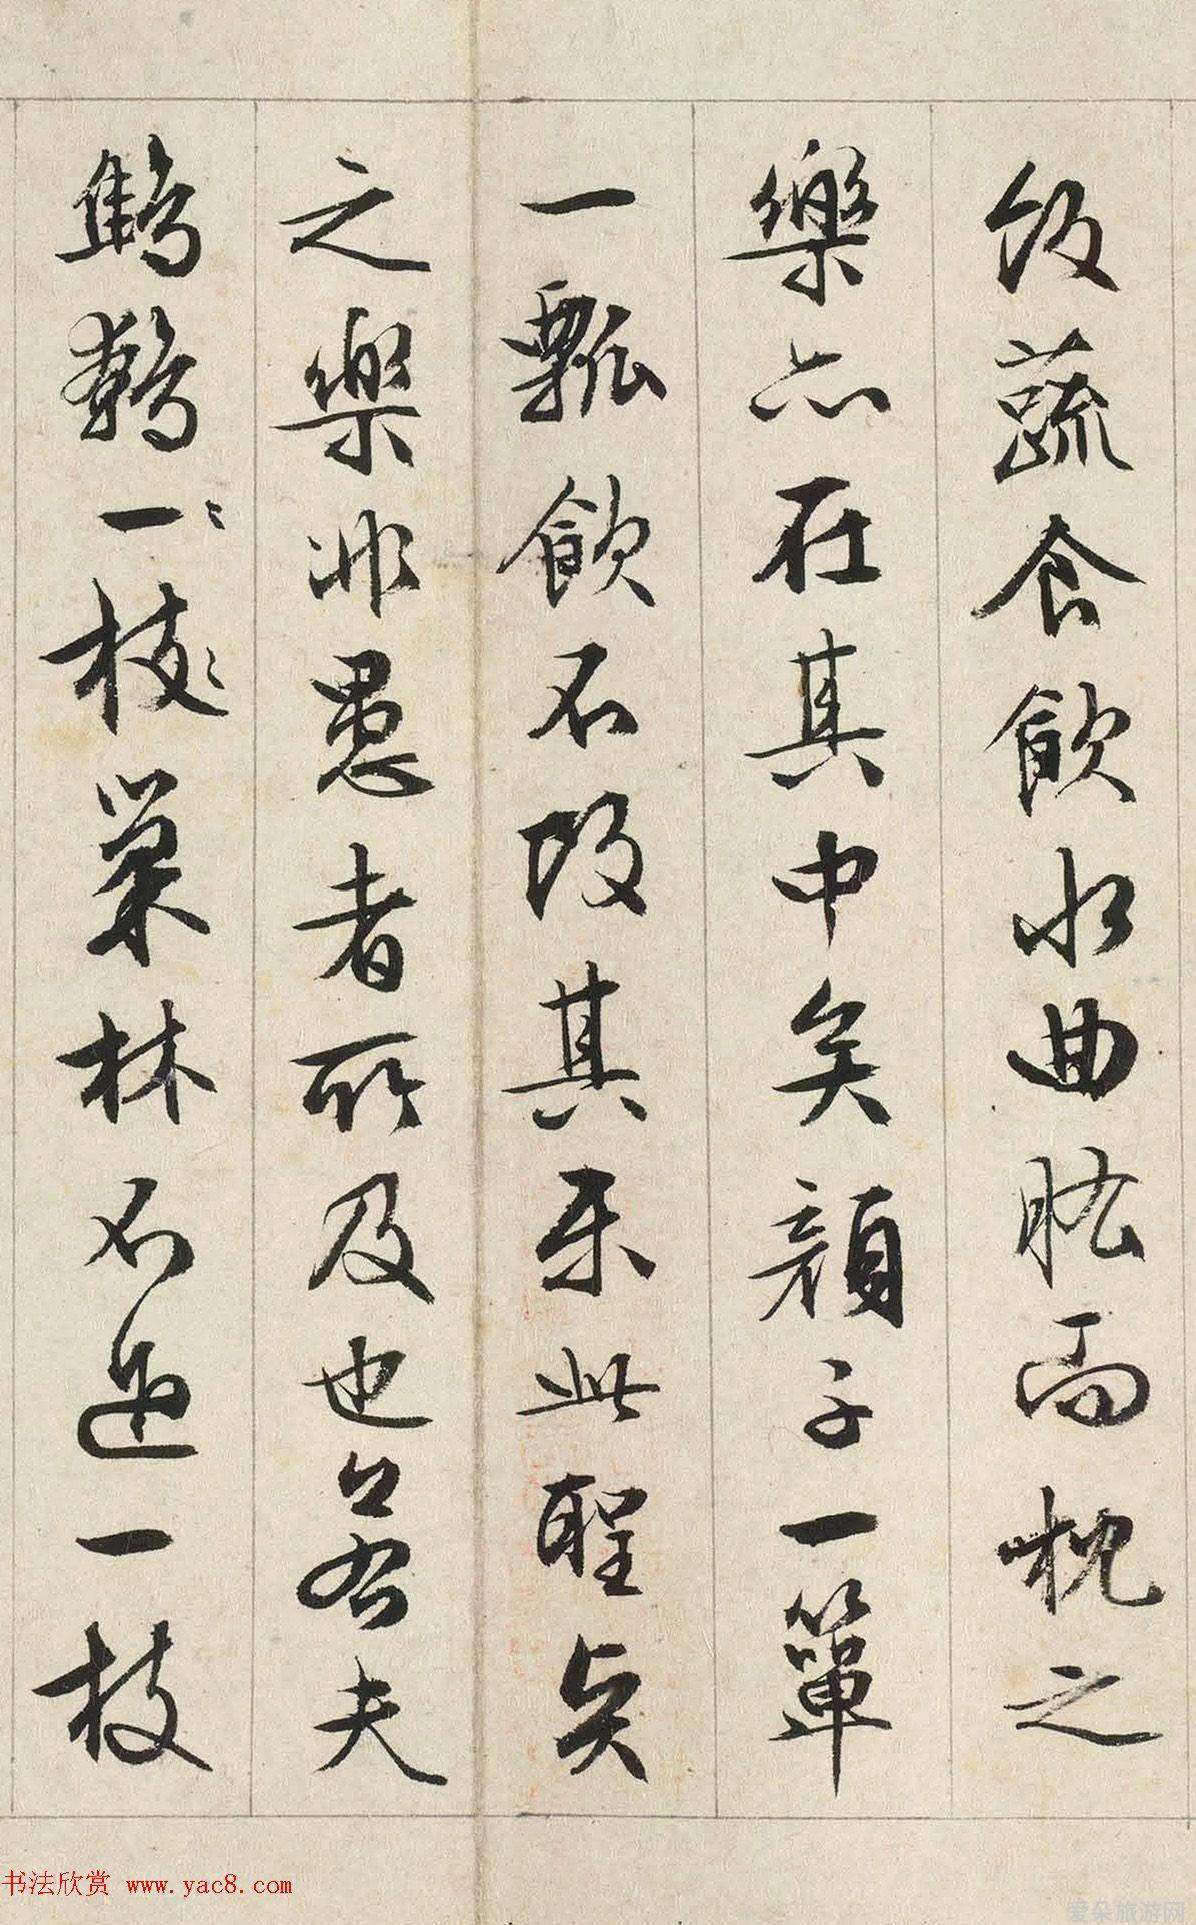 飯蔬食飲水曲肱而枕之
樂亦在其中矣顏子一簞
一瓢飲不改其樂此聖賢
之樂非愚者所及也若夫
鷦鷯一〻枝〻巢林不過一枝
书法欣赏 www.yac8.com
爱朵旅游网